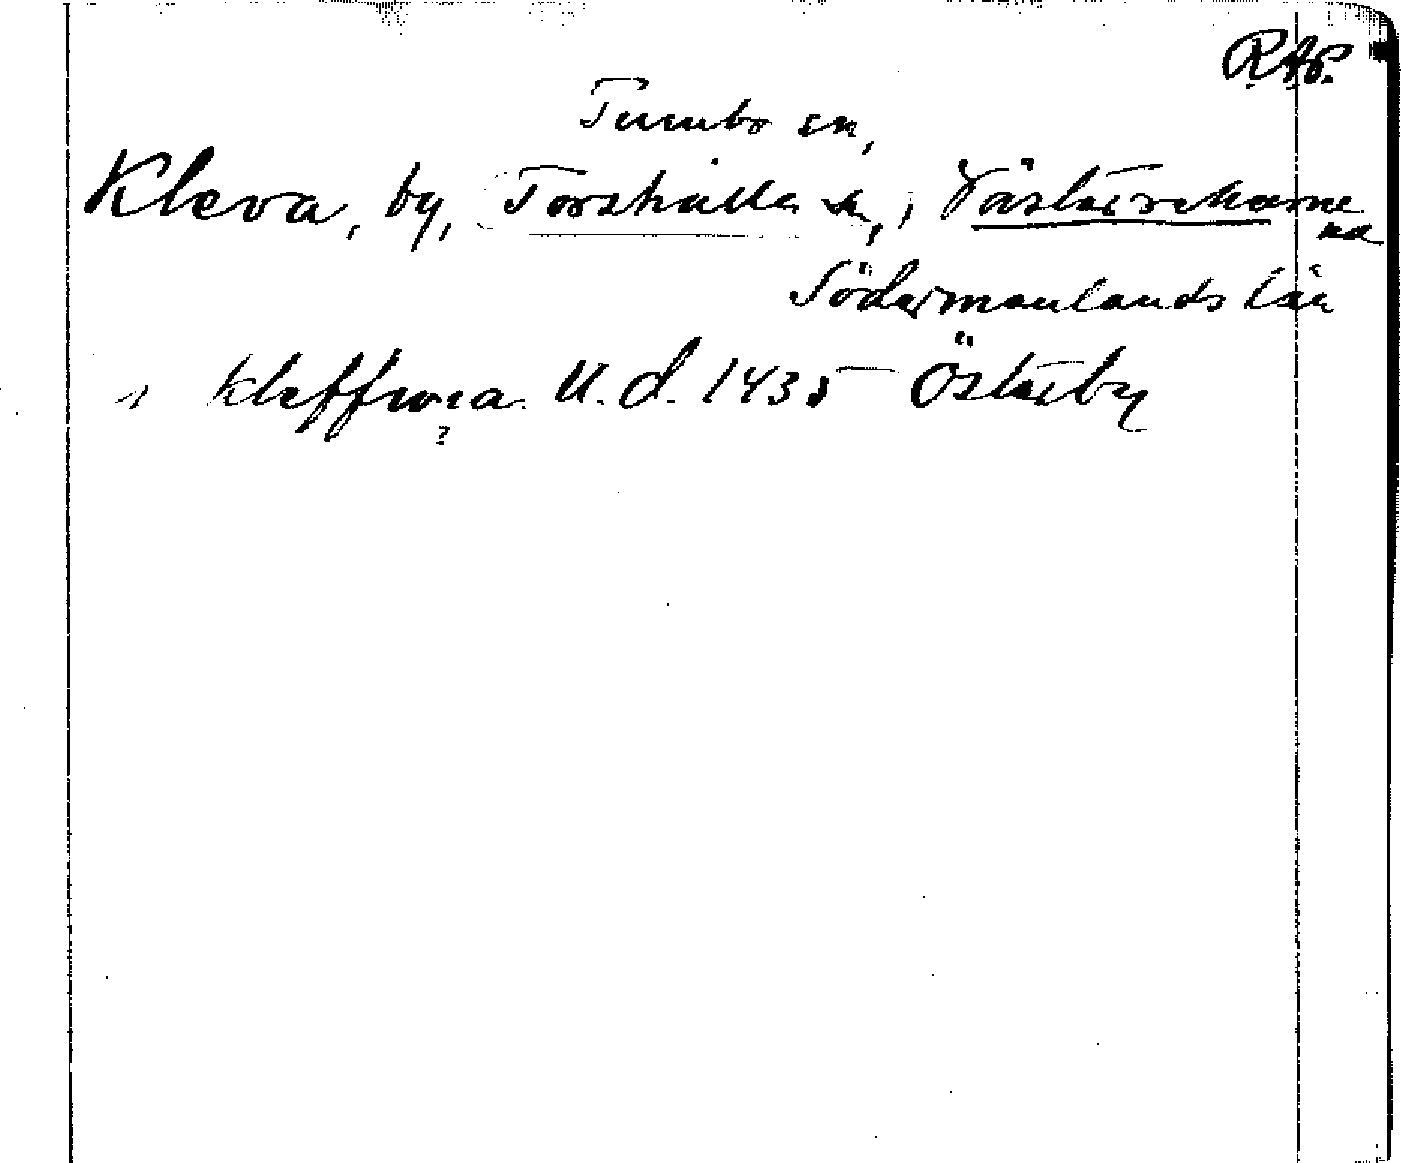 RAP.
Tumbo sn,
Kleva, by, Torshälla sn, Västerrekarne
hd
Södermanlands län
i Kleffwea U.d. 1435 Österby
?